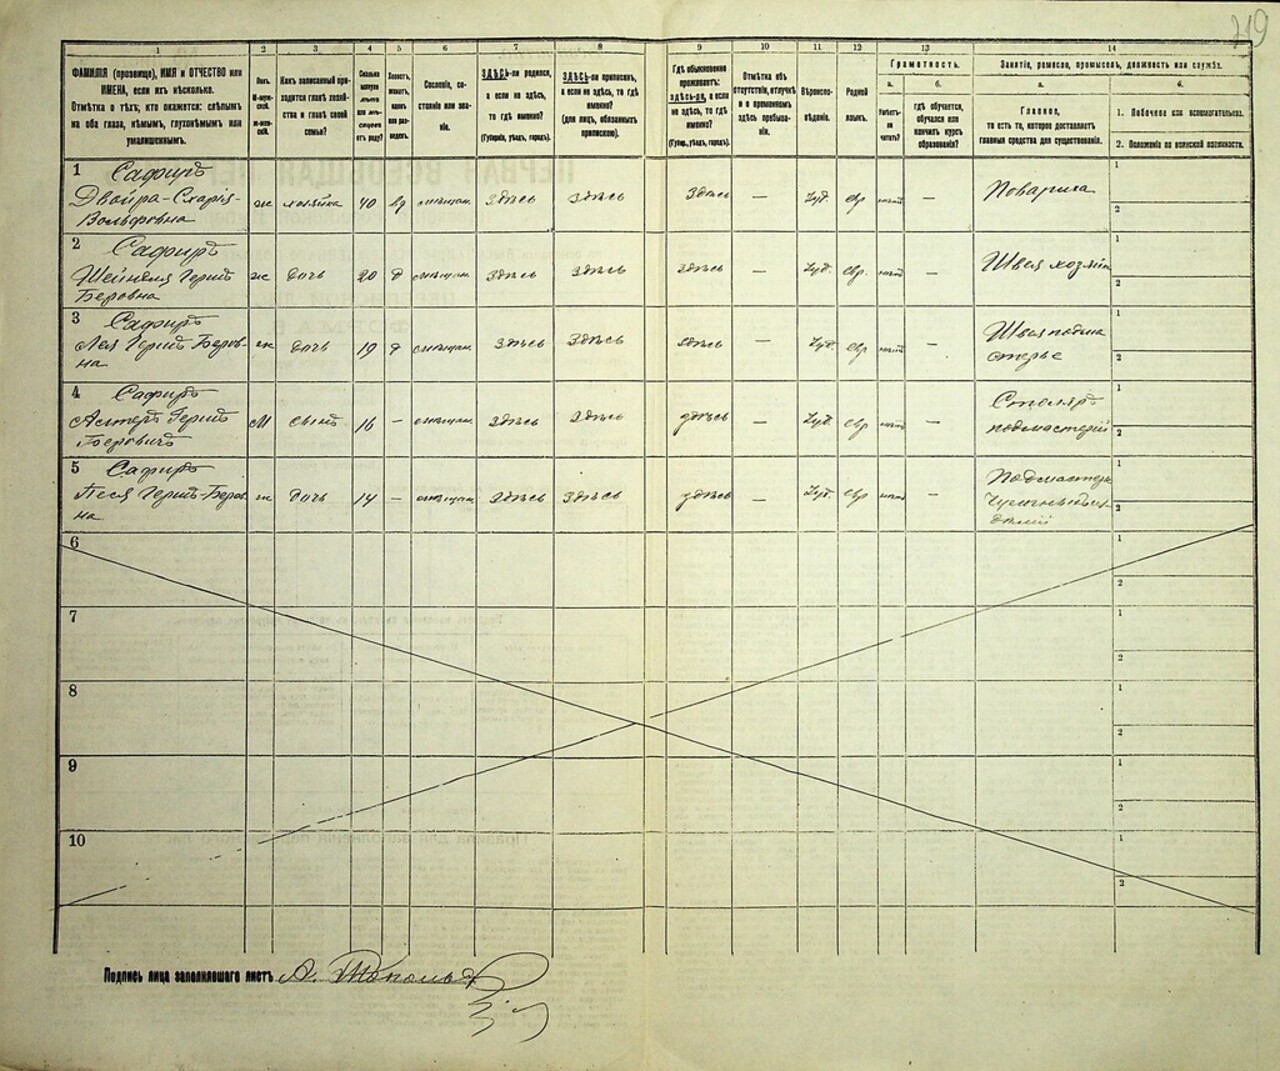 319
1 2 3 4 5 6 7 8 9 10 11 12 13 14
ФАМИЛІЯ (прозвище), ИМЯ и ОТЧЕСТВО или
ИМЕНА, если ихъ нѣсколько.
Отмѣтка о тѣхъ, кто окажется: слѣпымъ
на оба глаза, нѣмымъ, глухонѣмымъ или
умалишеннымъ.
Полъ.
М-муж-
ской.
Ж-жен-
скій.
Какъ записанный при-
ходится главѣ хозяй-
ства и главѣ своей
семьи?
Сколько
минуло
лѣтъ
или мѣ-
сяцевъ
отъ роду?
Холостъ,
женатъ,
вдовъ
или раз-
веденъ.
Сословіе, со-
стояніе или зва-
ніе.
ЗДѢСЬ-ли родился,
а если не здѣсь,
то гдѣ именно?
(Губернія, уѣздъ, городъ).
ЗДѢСЬ-ли приписанъ,
а если не здѣсь, то гдѣ
именно?
(для лицъ, обязанныхъ
припискою).
Гдѣ обыкновенно
проживаетъ:
здѣсь-ли, а если
не здѣсь, то гдѣ
именно?
(Губер., уѣздъ, городъ).
Отмѣтка объ
отсутствіи, отлучкѣ
и о временномъ
здѣсь пребыва-
ніи.
Вѣроиспо-
вѣданіе.
Родной
языкъ.
Грамотность.
а.
Умѣетъ-
ли
читать?
б.
гдѣ обучается,
обучался или
кончилъ курсъ
образованія?
Занятіе, ремесло, промыселъ, должность или служба.
а.
Главное,
то есть то, которое доставляетъ
главныя средства для существованія.
б.
1. Побочное или вспомогательное.
2. Положеніе по воинской повинности.
1 Сафиръ
Двойра-
Вольфовна
ж хозяйка 40 вд мѣщан. Здѣсь Здѣсь Здѣсь — Іуд. евр — Повариха
1
2
2 Сафиръ
Шейндля Герш
Беровна
ж дочь 20 д мѣщан. Здѣсь Здѣсь Здѣсь — Іуд. евр. — Швея хозяйк
1
2
3 Сафиръ
Лея Герш Беров-
на
ж дочь 19 д мѣщан. Здѣсь Здѣсь Здѣсь — Іуд. евр — Швея подма
стерье
1
2
4 Сафиръ
Герш
Беровичъ
М сынъ 16 — мѣщан. Здѣсь Здѣсь Здѣсь — Іуд. евр — Столяръ
подмастерій
1
2
5 Сафиръ
Песя Герш-Беров
на
ж дочь 14 — мѣщан. Здѣсь Здѣсь Здѣсь — Іуд. евр — Подмастер
1
2
6
1
2
7
1
2
8
1
2
9
1
2
10
1
2
Подпись лица заполнявшаго листъ А.